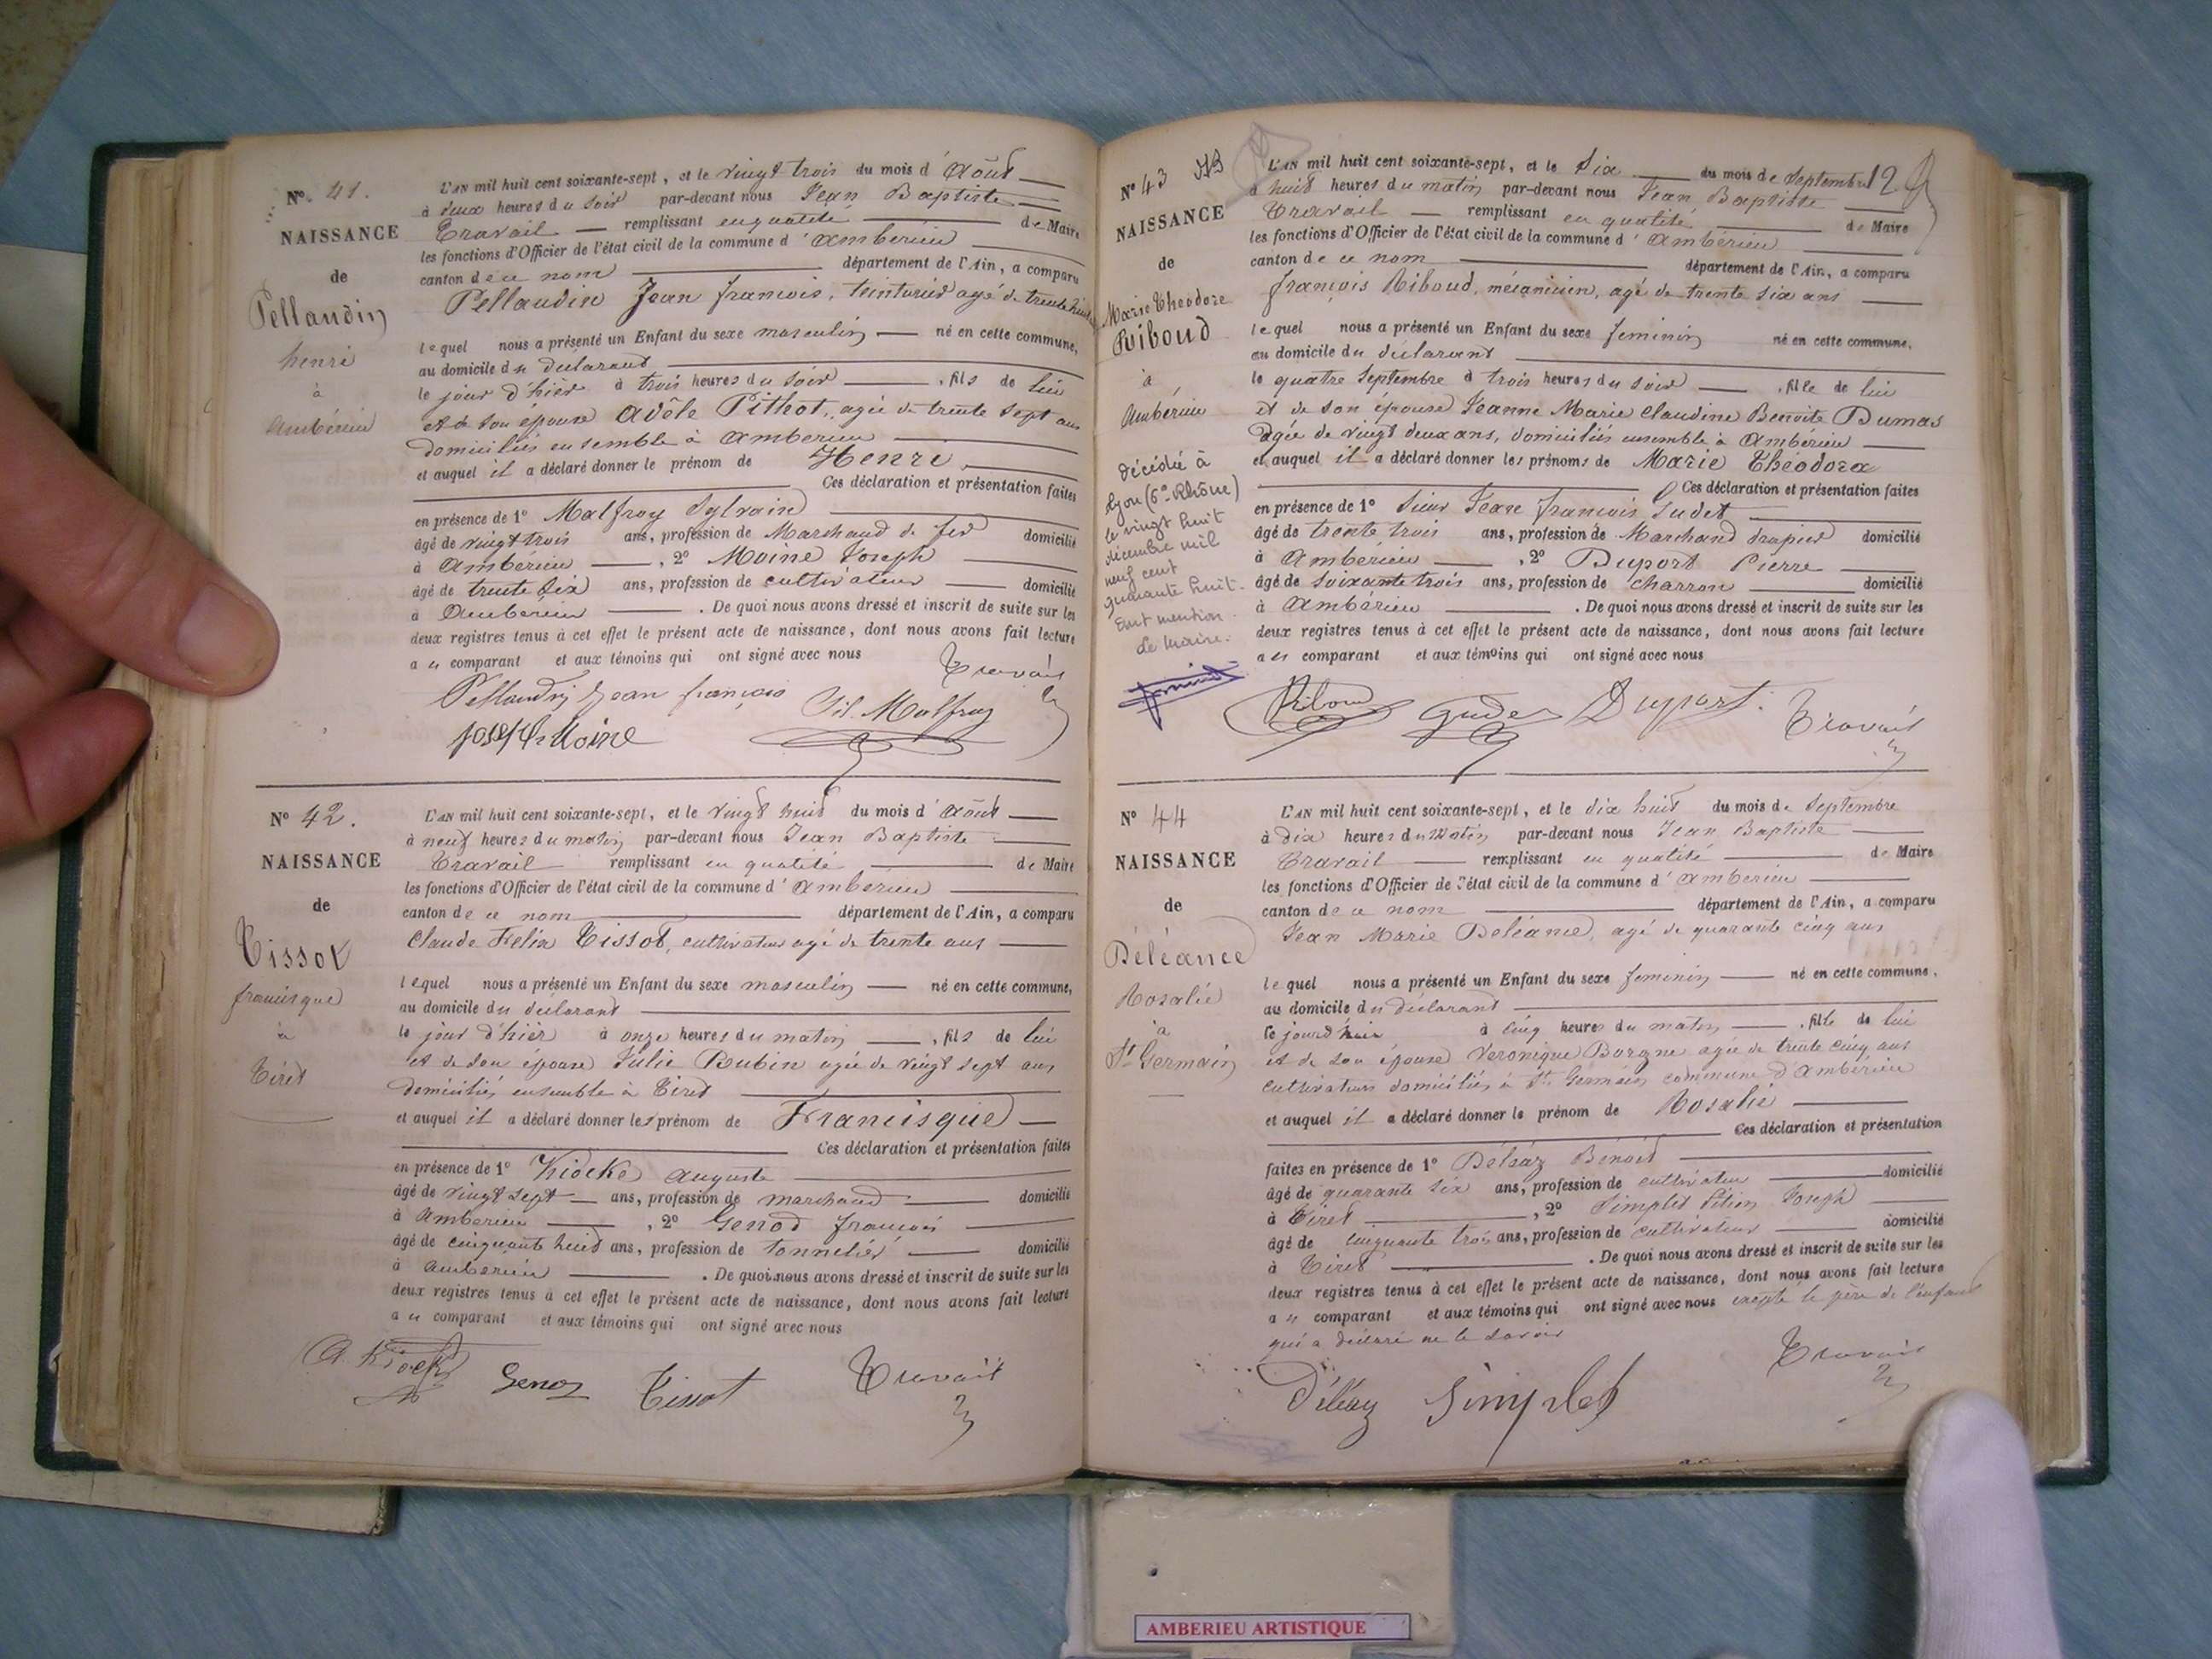 N° 41.
NAISSANCE
de
Pellaudin
henri
à
Ambérieu
L'AN mil huit cent soixante-sept, et le vingt trois du mois d'Août
à deux heures du soir par-devant nous Jean Baptiste
Travail remplissant en qualité de Maire
les fonctions d'Officier de l'état civil de la commune d'Ambérieu
canton de ce nom département de l'Ain, a comparu
Pellaudin Jean françois, teinturier agé de trente huit
lequel nous a présenté un Enfant du sexe masculin né en cette commune,
au domicile du déclarant
le jour d'hièr à trois heures du soir, fils de lui
et de son épouse Adèle Pithot, agée de trente sept ans
domiciliés ensemble à Ambérieu
et auquel il a déclaré donner le prénom de Henri
Ces déclaration et présentation faites
en présence de 1° Malfroy Sylvain
âgé de vingt trois ans, profession de Marchand de fer domicilié
à Ambérieu, 2° Moine Joseph
âgé de trente six ans, profession de cultivateur domicilié
à Ambérieu. De quoi nous avons dressé et inscrit de suite sur les
deux registres tenus à cet effet le présent acte de naissance, dont nous avons fait lecture
au comparant et aux témoins qui ont signé avec nous
Travail
Pellaudin Jean françois Sil. Malfroy
joseph Moine
N° 42.
NAISSANCE
de
Tissot
francisque
à
Tiret
L'AN mil huit cent soixante-sept, et le vingt huit du mois d'Août
à neuf heures du matin par-devant nous Jean Baptiste
Travail remplissant en qualité de Maire
les fonctions d'Officier de l'état civil de la commune d'Ambérieu
canton de ce nom département de l'Ain, a comparu
Claude Felix Tissot, cultivateur agé de trente ans
lequel nous a présenté un Enfant du sexe masculin né en cette commune,
au domicile du déclarant
le jour d'hièr à onze heures du matin, fils de lui
et de son épouse Julie Bubin agée de vingt sept ans
domiciliés ensemble à Tiret
et auquel il a déclaré donner les prénom de Francisque
Ces déclaration et présentation faites
en présence de 1° Kiocke Auguste
âgé de vingt sept ans, profession de marchand domicilié
à Ambérieu, 2° Genod françois
âgé de cinquante huit ans, profession de tonnelier domicilié
à Ambérieu. De quoi nous avons dressé et inscrit de suite sur les
deux registres tenus à cet effet le présent acte de naissance, dont nous avons fait lecture
au comparant et aux témoins qui ont signé avec nous
A. Kiocke Genod Tissot Travail
N° 43
NAISSANCE
de
Marie Théodore
Riboud
à
Ambérieu
décédée à
Lyon (6e Rhône)
le vingt huit
décembre mil
neuf cent
quarante huit.
Dont mention
Le Maire.
L'AN mil huit cent soixante-sept, et le Six du mois de Septembre 12
à huit heures du matin par-devant nous Jean Baptiste
Travail remplissant en qualité de Maire
les fonctions d'Officier de l'état civil de la commune d'Ambérieu
canton de ce nom département de l'Ain, a comparu
françois Riboud, mécanicien, agé de trente six ans
lequel nous a présenté un Enfant du sexe feminin né en cette commune,
au domicile du déclarant
le quatre Septembre à trois heures du soir, fille de lui
et de son épouse Jeanne Marie Claudine Benoite Dumas
agée de vingt deux ans, domiciliés ensemble à Ambérieu
et auquel il a déclaré donner les prénoms de Marie Théodora
Ces déclaration et présentation faites
en présence de 1° Sieur Jean francois Gudet
âgé de trente trois ans, profession de Marchand drapier domicilié
à Ambérieu, 2° Duport Pierre
âgé de soixante trois ans, profession de Charron domicilié
à Ambérieu. De quoi nous avons dressé et inscrit de suite sur les
deux registres tenus à cet effet le présent acte de naissance, dont nous avons fait lecture
au comparant et aux témoins qui ont signé avec nous
Riboud Gudet Duport. Travail
N° 44
NAISSANCE
de
Déléance
Rosalie
à
St Germain
L'AN mil huit cent soixante-sept, et le dix huit du mois de Septembre
à dix heures du Matin par-devant nous Jean Baptiste
Travail remplissant en qualité de Maire
les fonctions d'Officier de l'état civil de la commune d'Ambérieu
canton de ce nom département de l'Ain, a comparu
Jean Marie Déléance, agé de quarante cinq ans
lequel nous a présenté un Enfant du sexe feminin né en cette commune,
au domicile du déclarant
ce jourd'huir à cinq heures du matin, fille de lui
et de son épouse Veronique Borgne agée de trente cinq ans
cultivateurs domiciliés à St Germain commune d'Ambérieu
et auquel il a déclaré donner le prénom de Rosalie
Ces déclaration et présentation
faites en présence de 1° Déléaz Benoit
âgé de quarante six ans, profession de cultivateur domicilié
à Tiret, 2° Simplet Joseph
âgé de cinquante trois ans, profession de cultivateur domicilié
à Tiret. De quoi nous avons dressé et inscrit de suite sur les
deux registres tenus à cet effet le présent acte de naissance, dont nous avons fait lecture
au comparant et aux témoins qui ont signé avec nous excepté le père de l'enfant
qui a déclaré ne le savoir
Déléaz Simplet Travail
AMBERIEU ARTISTIQUE